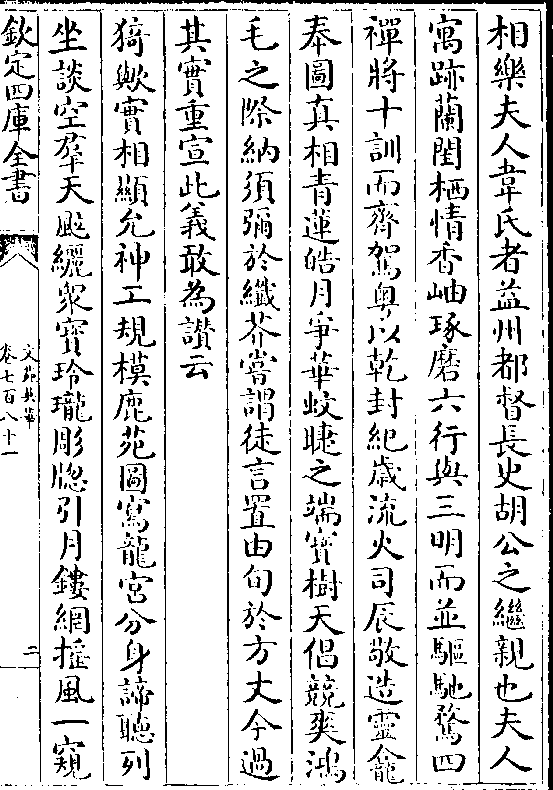 相樂夫人韋氏者益州都督長史胡公之繼親也夫人
寓跡蘭閨栖情香岫琢磨六行與三明而並驅馳騖四
禪將十訓而齊駕粤以乾封紀歳流火司辰敬造靈龕
奉圖真相青蓮皓月爭華蚊睫之端寳樹天侶競爽鴻
毛之際納須彌於纖芥嘗謂徒言置由旬於方丈今過
其實重宣此義敢為讃云
猗歟實相顯允神工規模鹿苑圖寫龍宮分身諦聽列
坐談空羣天䬃纚衆寳玲瓏彫牎引月鏤網揺風一窺
欽定四庫全書
文苑英華
卷七百八十一
二